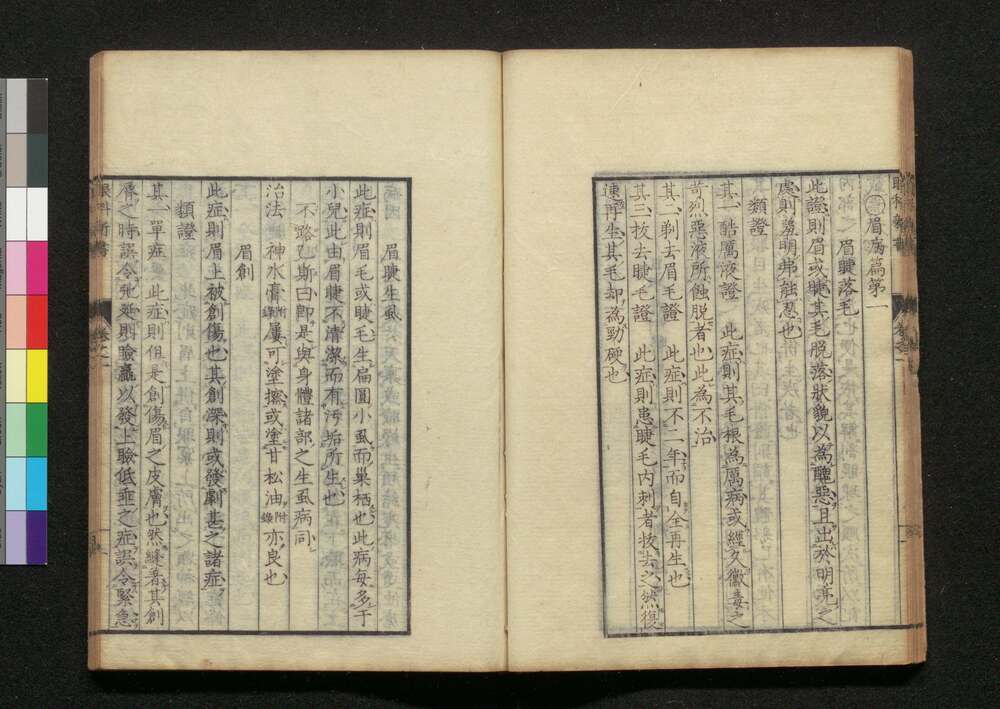 眉病篇第一
眉睫落毛
此證則眉或睫其毛脫落狀貌以為醜惡且出於明亮之
處則羞明弗能忍也
類證
其一酷厲液證 此症則其毛根為厲病或經久黴毒之
苛烈惡液所蝕脫者也此為不治
其二剃去眉毛證 此症則不二年而自全再生也
其三拔去睫毛證 此症則患睫毛內刺者拔去之然復
速再生其毛却為勁硬也
眼科新書 卷之一
眉睫生虱
此症則眉毛或睫毛生扁圓小虱而巢栖也此病每多于
小兒此由眉睫不清潔而有污垢所生也
不路乙斯曰即是與身體諸部之生虱病同
治法 神水膏附錄屢可塗擦或塗甘松油附錄亦良也
眉創
此症則眉上被創傷也其創深則或發劇甚之諸症
類證
其一單症 此症則但是創傷眉之皮膚也然縫著其創
唇之時誤令弛延則瞼羸以發上瞼低垂之症誤令緊急
眼科新書 卷之一